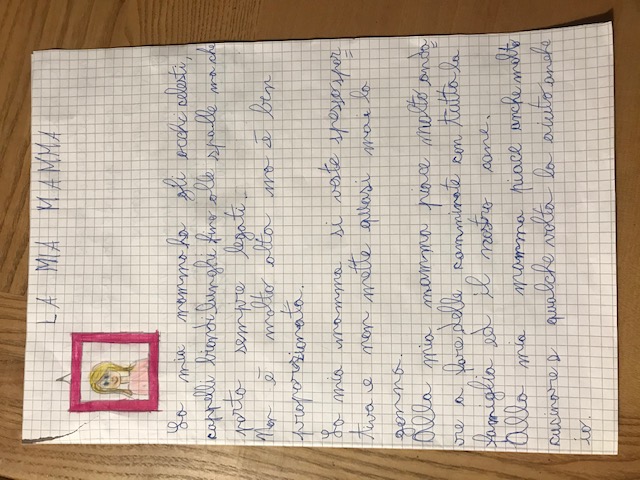 LA MIA MAMMA
La mia mamma ha gli occhi celesti,
cappelli biondi lunghi fino alle spalle ma che
porta sempre legati.
Non è molto alta ma è ben
proporzionata.
La mia mamma si veste spesso spor=
tiva e non mette quasi mai la
gonna.
Alla mia mamma piace molto anda=
re a fare delle camminate con tutta la
famiglia ed il nostro cane.
Alla mia mamma piace anche molto
cucinare e qualche volta la aiuto anche
io.